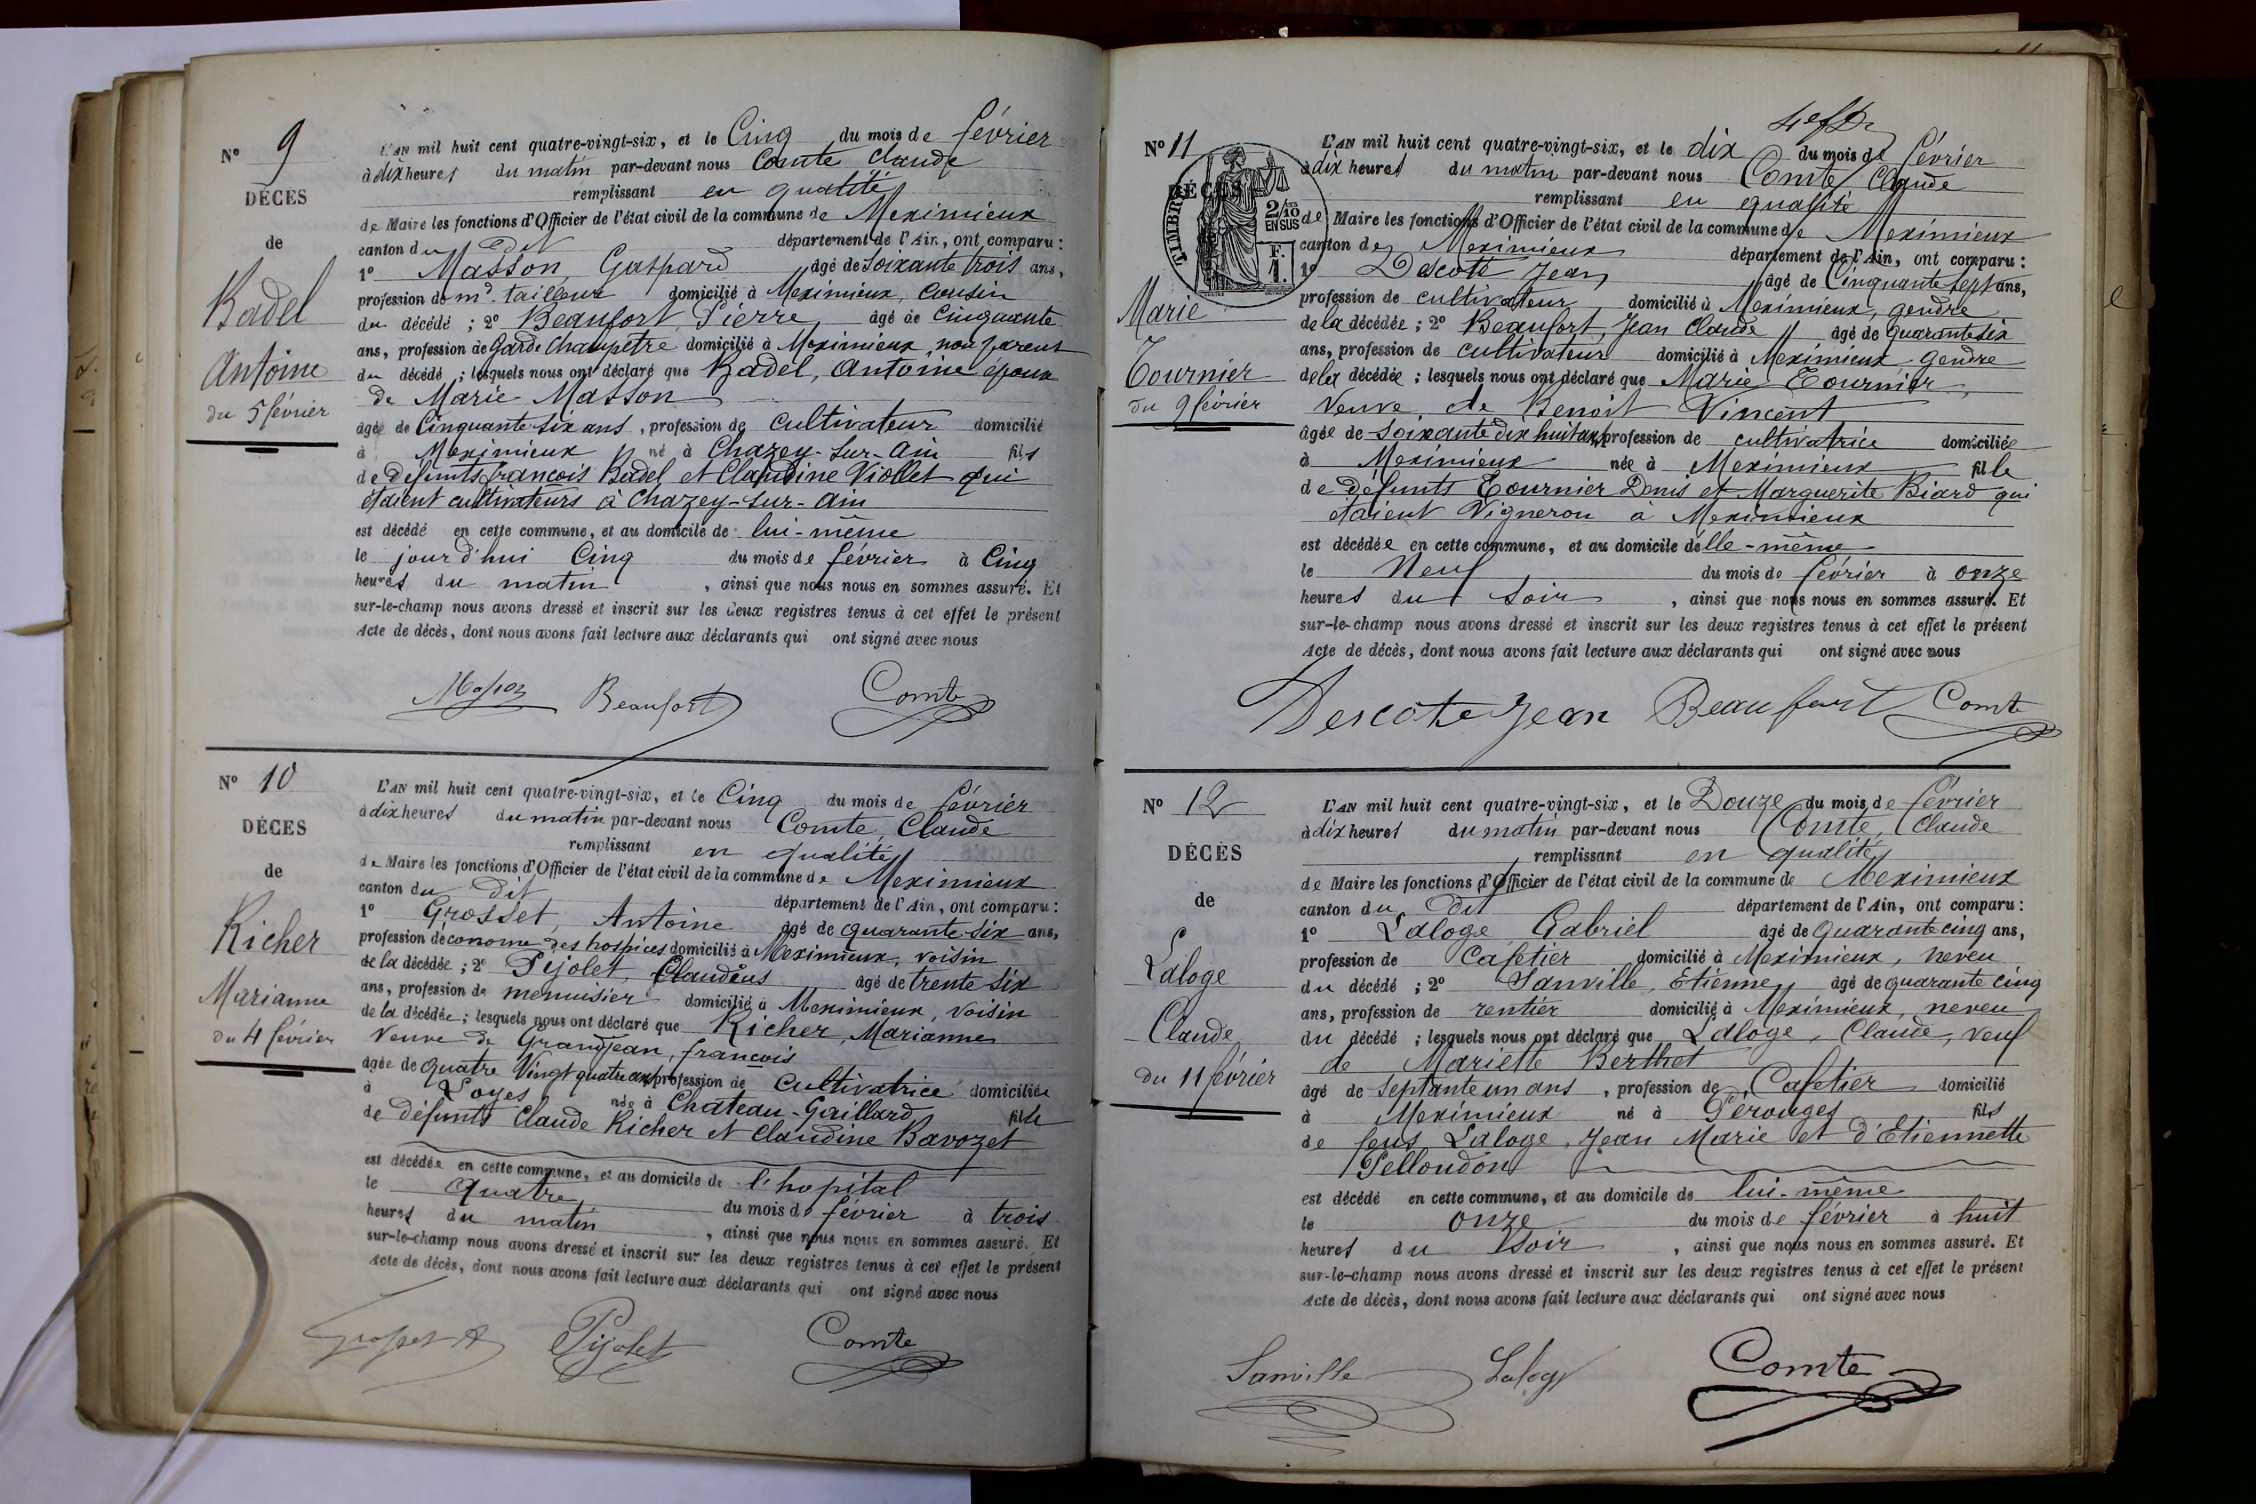 N° 9
DÉCÈS
de
Badel
Antoine
du 5 février
L'AN mil huit cent quatre-vingt-six, et le Cinq du mois de février
à dix heures du matin par-devant nous Comte Claude
remplissant en qualité
de Maire les fonctions d'Officier de l'état civil de la commune de Meximieux
canton du dit département de l'Ain, ont comparu :
1° Masson, Gaspard âgé de Soixante trois ans,
profession de md tailleur domicilié à Meximieux, cousin
du décédé ; 2° Beaufort, Pierre âgé de Cinquante
ans, profession de Garde Champêtre domicilié à Meximieux, non parent
du décédé ; lesquels nous ont déclaré que Badel, Antoine époux
de Marie Masson
âgé de Cinquante six ans, profession de Cultivateur domicilié
à Meximieux né à Chazey-sur-Ain fils
de défunts françois Badel et Claudine Viollet qui
étaient cultivateurs à Chazey-sur-Ain
est décédé en cette commune, et au domicile de lui-même
le jour d'hui Cinq du mois de février à Cinq
heures du matin, ainsi que nous nous en sommes assuré. Et
sur-le-champ nous avons dressé et inscrit sur les deux registres tenus à cet effet le présent
Acte de décès, dont nous avons fait lecture aux déclarants qui ont signé avec nous
Masson Beaufort Comte
N° 10
DÉCÈS
de
Richer
Marianne
du 4 février
L'AN mil huit cent quatre-vingt-six, et le Cinq du mois de février
à dix heures du matin par-devant nous Comte, Claude
remplissant en qualité
de Maire les fonctions d'Officier de l'état civil de la commune de Meximieux
canton du dit département de l'Ain, ont comparu :
1° Grosset, Antoine âgé de quarante-six ans,
profession d'économe des hospices domicilié à Meximieux, voisin
de la décédée ; 2° Pijolet, Claudius âgé de trente six
ans, profession de menuisier domicilié à Meximieux, voisin
de la décédée ; lesquels nous ont déclaré que Richer, Marianne
Veuve de Grandjean, françois
âgée de quatre Vingt quatre ans, profession de Cultivatrice domiciliée
à Loyes née à Chateau-Gaillard fille
de défunts Claude Richer et Claudine Bavozet
est décédée en cette commune, et au domicile de l'hopital
le quatre du mois de février à trois
heures du matin, ainsi que nous nous en sommes assuré. Et
sur-le-champ nous avons dressé et inscrit sur les deux registres tenus à cet effet le présent
Acte de décès, dont nous avons fait lecture aux déclarants qui ont signé avec nous
Grosset A Pijolet Comte
N° 11
DÉCÈS
TIMBRE
2/10 EN SUS
F. 1.
Marie
Tournier
du 9 février
L'AN mil huit cent quatre-vingt-six, et le dix du mois de février
à dix heures du matin par-devant nous Comte, Claude
remplissant en qualité
de Maire les fonctions d'Officier de l'état civil de la commune de Meximieux
canton de Meximieux département de l'Ain, ont comparu :
1° Descote Jean âgé de Cinquante sept ans,
profession de cultivateur domicilié à Meximieux, gendre
de la décédée ; 2° Beaufort, Jean Claude âgé de quarante six
ans, profession de cultivateur domicilié à Meximieux, gendre
de la décédée ; lesquels nous ont déclaré que Marie Tournier,
Veuve de Benoit Vincent
âgée de Soixante dix huit ans, profession de cultivatrice domiciliée
à Meximieux née à Meximieux fille
de défunts Tournier Denis et Marguerite Biard qui
étaient Vigneron à Meximieux
est décédée en cette commune, et au domicile d'elle-même
le Neuf du mois de février à onze
heures du soir, ainsi que nous nous en sommes assuré. Et
sur-le-champ nous avons dressé et inscrit sur les deux registres tenus à cet effet le présent
Acte de décès, dont nous avons fait lecture aux déclarants qui ont signé avec nous
Descote Jean Beaufort Comte
N° 12
DÉCÈS
de
Laloge
Claude
du 11 février
L'AN mil huit cent quatre-vingt-six, et le Douze du mois de février
à dix heures du matin par-devant nous Comte, Claude
remplissant en qualité
de Maire les fonctions d'Officier de l'état civil de la commune de Meximieux
canton du dit département de l'Ain, ont comparu :
1° Laloge Gabriel âgé de Quarante cinq ans,
profession de Cafetier domicilié à Meximieux, neveu
du décédé ; 2° Sanville, Etienne âgé de quarante cinq
ans, profession de rentier domicilié à Meximieux, neveu
du décédé ; lesquels nous ont déclaré que Laloge, Claude, veuf
de Mariette Berthet
âgé de septante un ans, profession de Cafetier domicilié
à Meximieux né à Pérouges fils
de feus Laloge, Jean Marie et d'Etiennette
Pelloudon
est décédé en cette commune, et au domicile de lui-même
le onze du mois de février à huit
heures du soir, ainsi que nous nous en sommes assuré. Et
sur-le-champ nous avons dressé et inscrit sur les deux registres tenus à cet effet le présent
Acte de décès, dont nous avons fait lecture aux déclarants qui ont signé avec nous
Sanville Laloge Comte